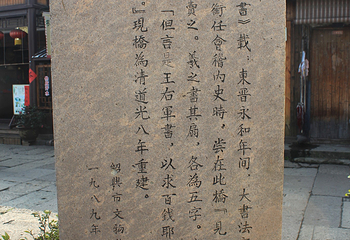 書》載：東晉永和年間，大書法
衔任會稽內史時，嘗在此橋『見
賣之。羲之書其扇，各為五字。
「但言是王右軍書，以求百錢耶
。』現橋為清道光八年重建。
紹興市文物
一九八九年